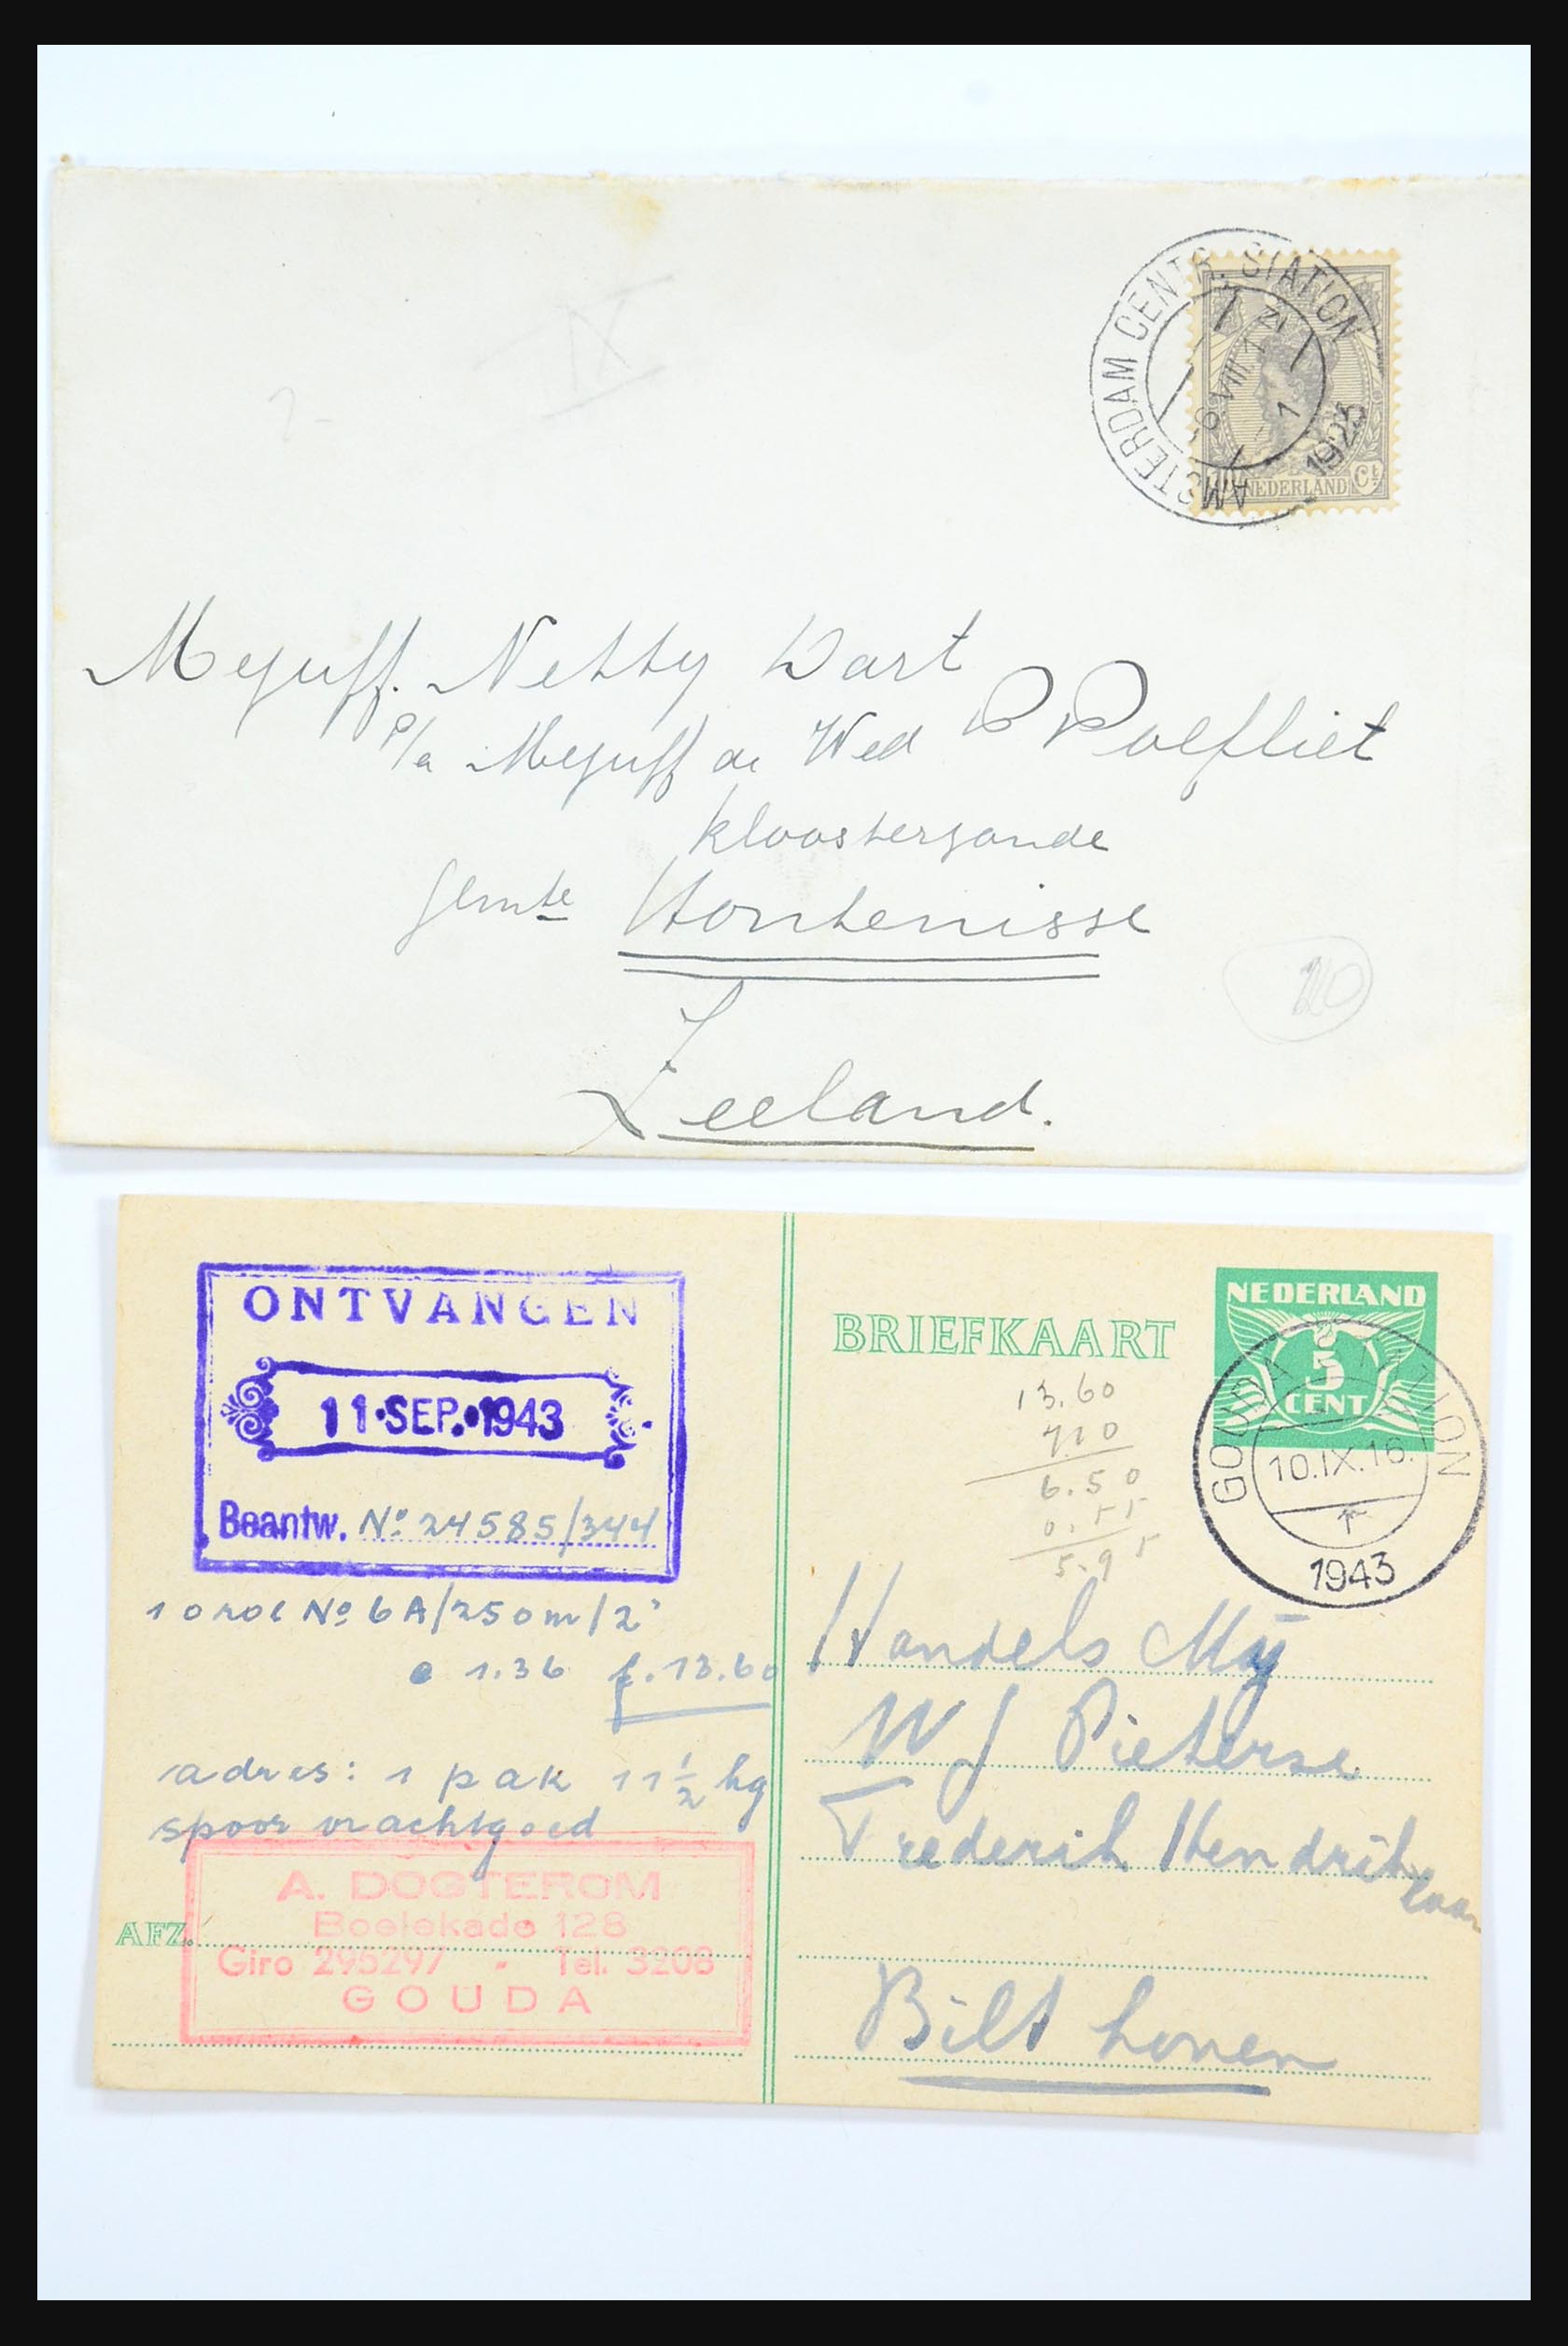 AMSTERDAM CENTR. STATION
8 VIII
1925
NEDERLAND Ct
IX
Mejuff. Netty Dart
P/a Mejuff de Wed P Poefliet
kloosterzande
gemte Hontenisse
10
Zeeland.
ONTVANGEN
11·SEP.·1943
Beantw. No 24585/344
10 rol No 6A/250m/2"
e 1.36 f. 13.60
adres: 1 pak 11 1/2 kg
spoor vrachtgoed
A. DOGTEROM
Boelekade 128
AFZ.
Giro 295297 - Tel. 3208
GOUDA
NEDERLAND
5
CENT
BRIEFKAART
GOUDA STATION
10.IX.16.
1943
13.60
7.10
6.50
0.55
5.95
Handels Mij
W J Pieterse
Frederik Hendrik laan
Bilthoven